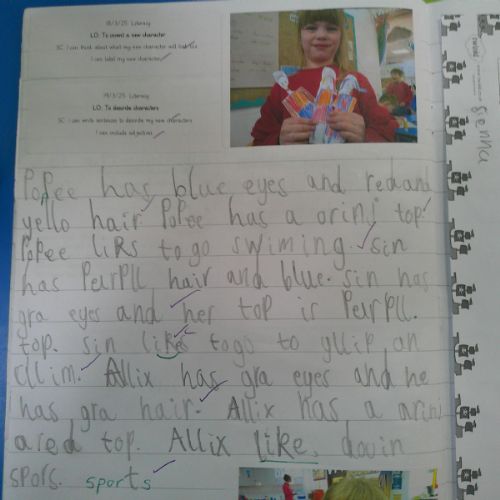 18/3/25 Literacy
LO: To invent a new character
SC: I can think about what my new character will look like
I can label my new character
19/3/25 Literacy
LO: To describe characters
SC: I can write sentences to describe my new characters
I can include adjectives
Sienna
PoPee has blue eyes and red and
yello hair PoPee has a orinj top.
PoPee liks to go swiming. sin
has PeurPll hair and blue. sin has
gra eyes and her top is PeurPll.
top. sin likes togo to
Allix has gra eyes and he
has gra hair. Allix has a orinj
ared top. Allix like, dowin
spors. sports